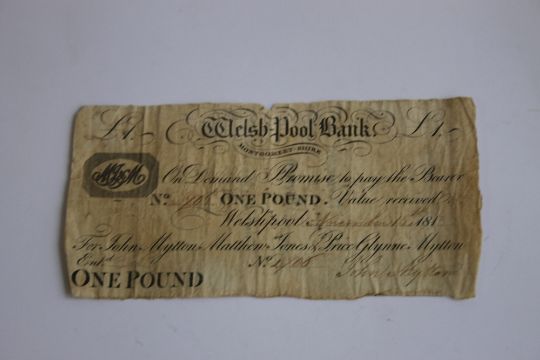 £1,- Welsh-Pool Bank £1,-
MONTGOMERY-SHIRE
MJ&M
On Demand I Promise to pay the Bearer
No. ONE POUND. Value received
Welshpool 181
For John Mytton Matthew Jones & Price Glynne Mytton
Entd. No. John Mytton
ONE POUND